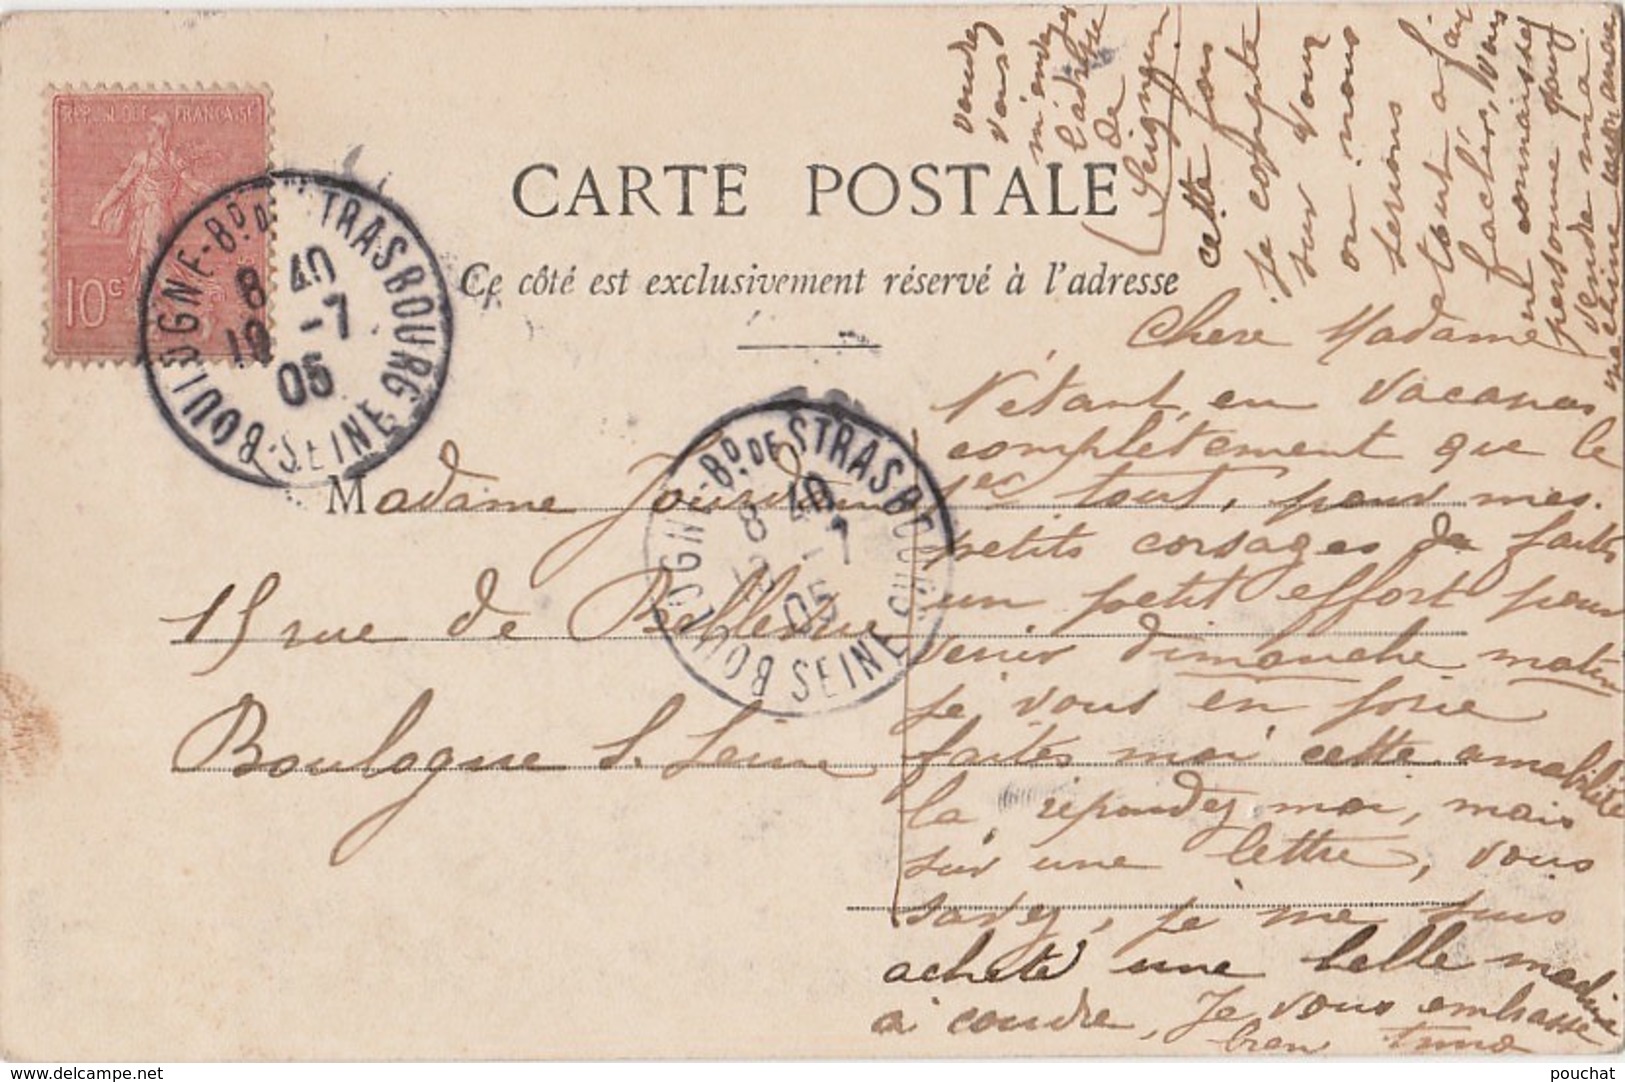 REPUBLIQUE FRANÇAISE
10c
BOULOGNE-Bd. DE STRASBOURG
8 40
10 -7
05
SEINE
CARTE POSTALE
Ce côté est exclusivement réservé à l'adresse
BOULOGNE-Bd. DE STRASBOURG
8 40
-7
05
SEINE
Madame Jourdain
15 rue de Bellevue
Boulogne s. Seine
Chere Madame
N'étant en vacances
complètement que le
1er tout, pour mes
petits corsages
faites
un petit effort pour
venir dimanche matin
je vous en prie
faites moi cette amabilité
la, répondez moi, mais
sur une lettre, vous
savez, je me suis
acheté une belle machine
à coudre, Je vous embrasse
bien
voudrez
vous
m'envoyer
l'adresse
de
Seigneur
cette fois
je compte
sur vous
ou nous
serions
tout à fait
fachés, vous
ne connaissez
personne pour
vendre ma
machine
pouchat
delcampe.net